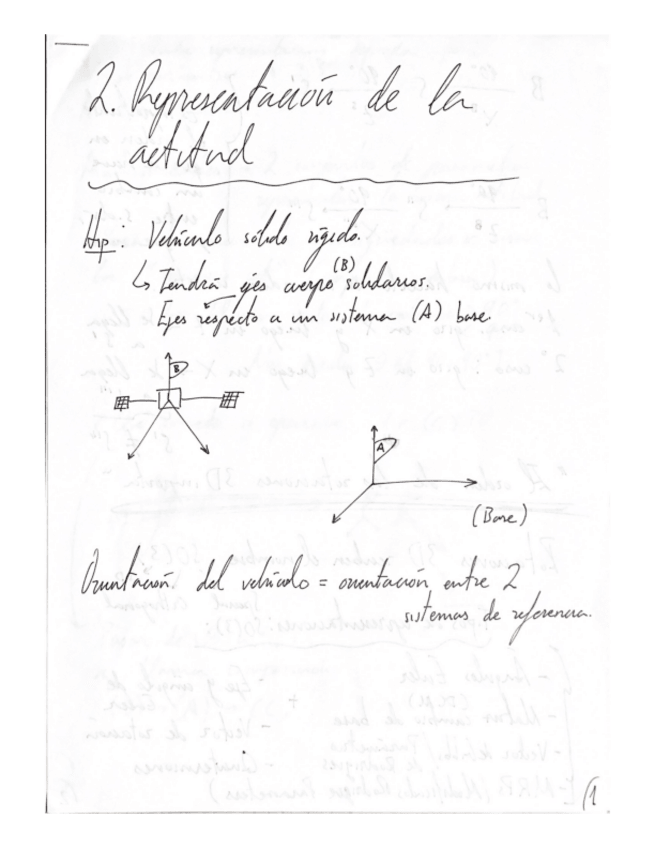 2. Representación de la
actitud
Hip: Vehículo sólido rígido.
↳ Tendrá ejes cuerpo (B) solidarios.
Ejes respecto a un sistema (A) base.
B
A
(Base)
Orientación del vehículo = orientación entre 2
sistemas de referencia.
1